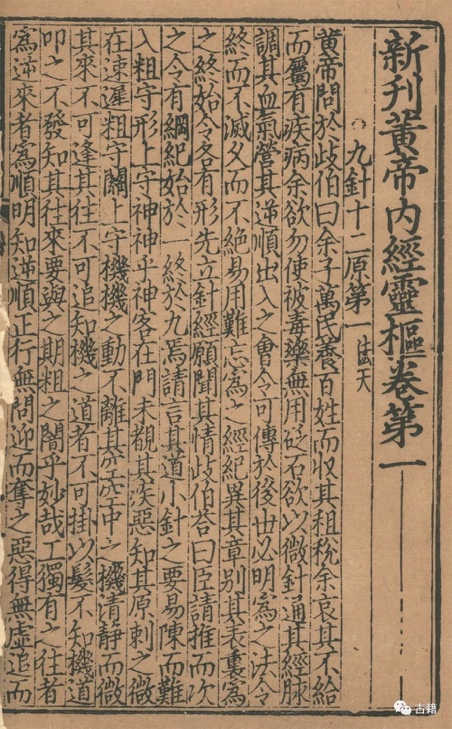 新刊黃帝內經靈樞卷第一
九針十二原第一 法天
黃帝問於歧伯曰余子萬民養百姓而収其租稅余哀其不給
而屬有疾病余欲勿使被毒藥無用砭石欲以微針通其經脉
調其血氣營其逆順出入之會令可傳於後世必明爲之法令
終而不滅久而不絕易用難忘爲之經紀異其章別其表裏爲
之終始令各有形先立針經願聞其情歧伯荅曰臣請推而次
之令有綱紀始於一終於九焉請言其道小針之要易陳而難
入粗守形上守神神乎神客在門未覩其疾惡知其原刺之微
在速遲粗守關上守機機之動不離其空空中之機清靜而微
其來不可逢其往不可追知機之道者不可掛以髮不知機道
叩之不發知其往來要與之期粗之闇乎妙哉工獨有之往者
爲逆來者爲順明知逆順正行無問迎而奪之惡得無虛追而
古籍